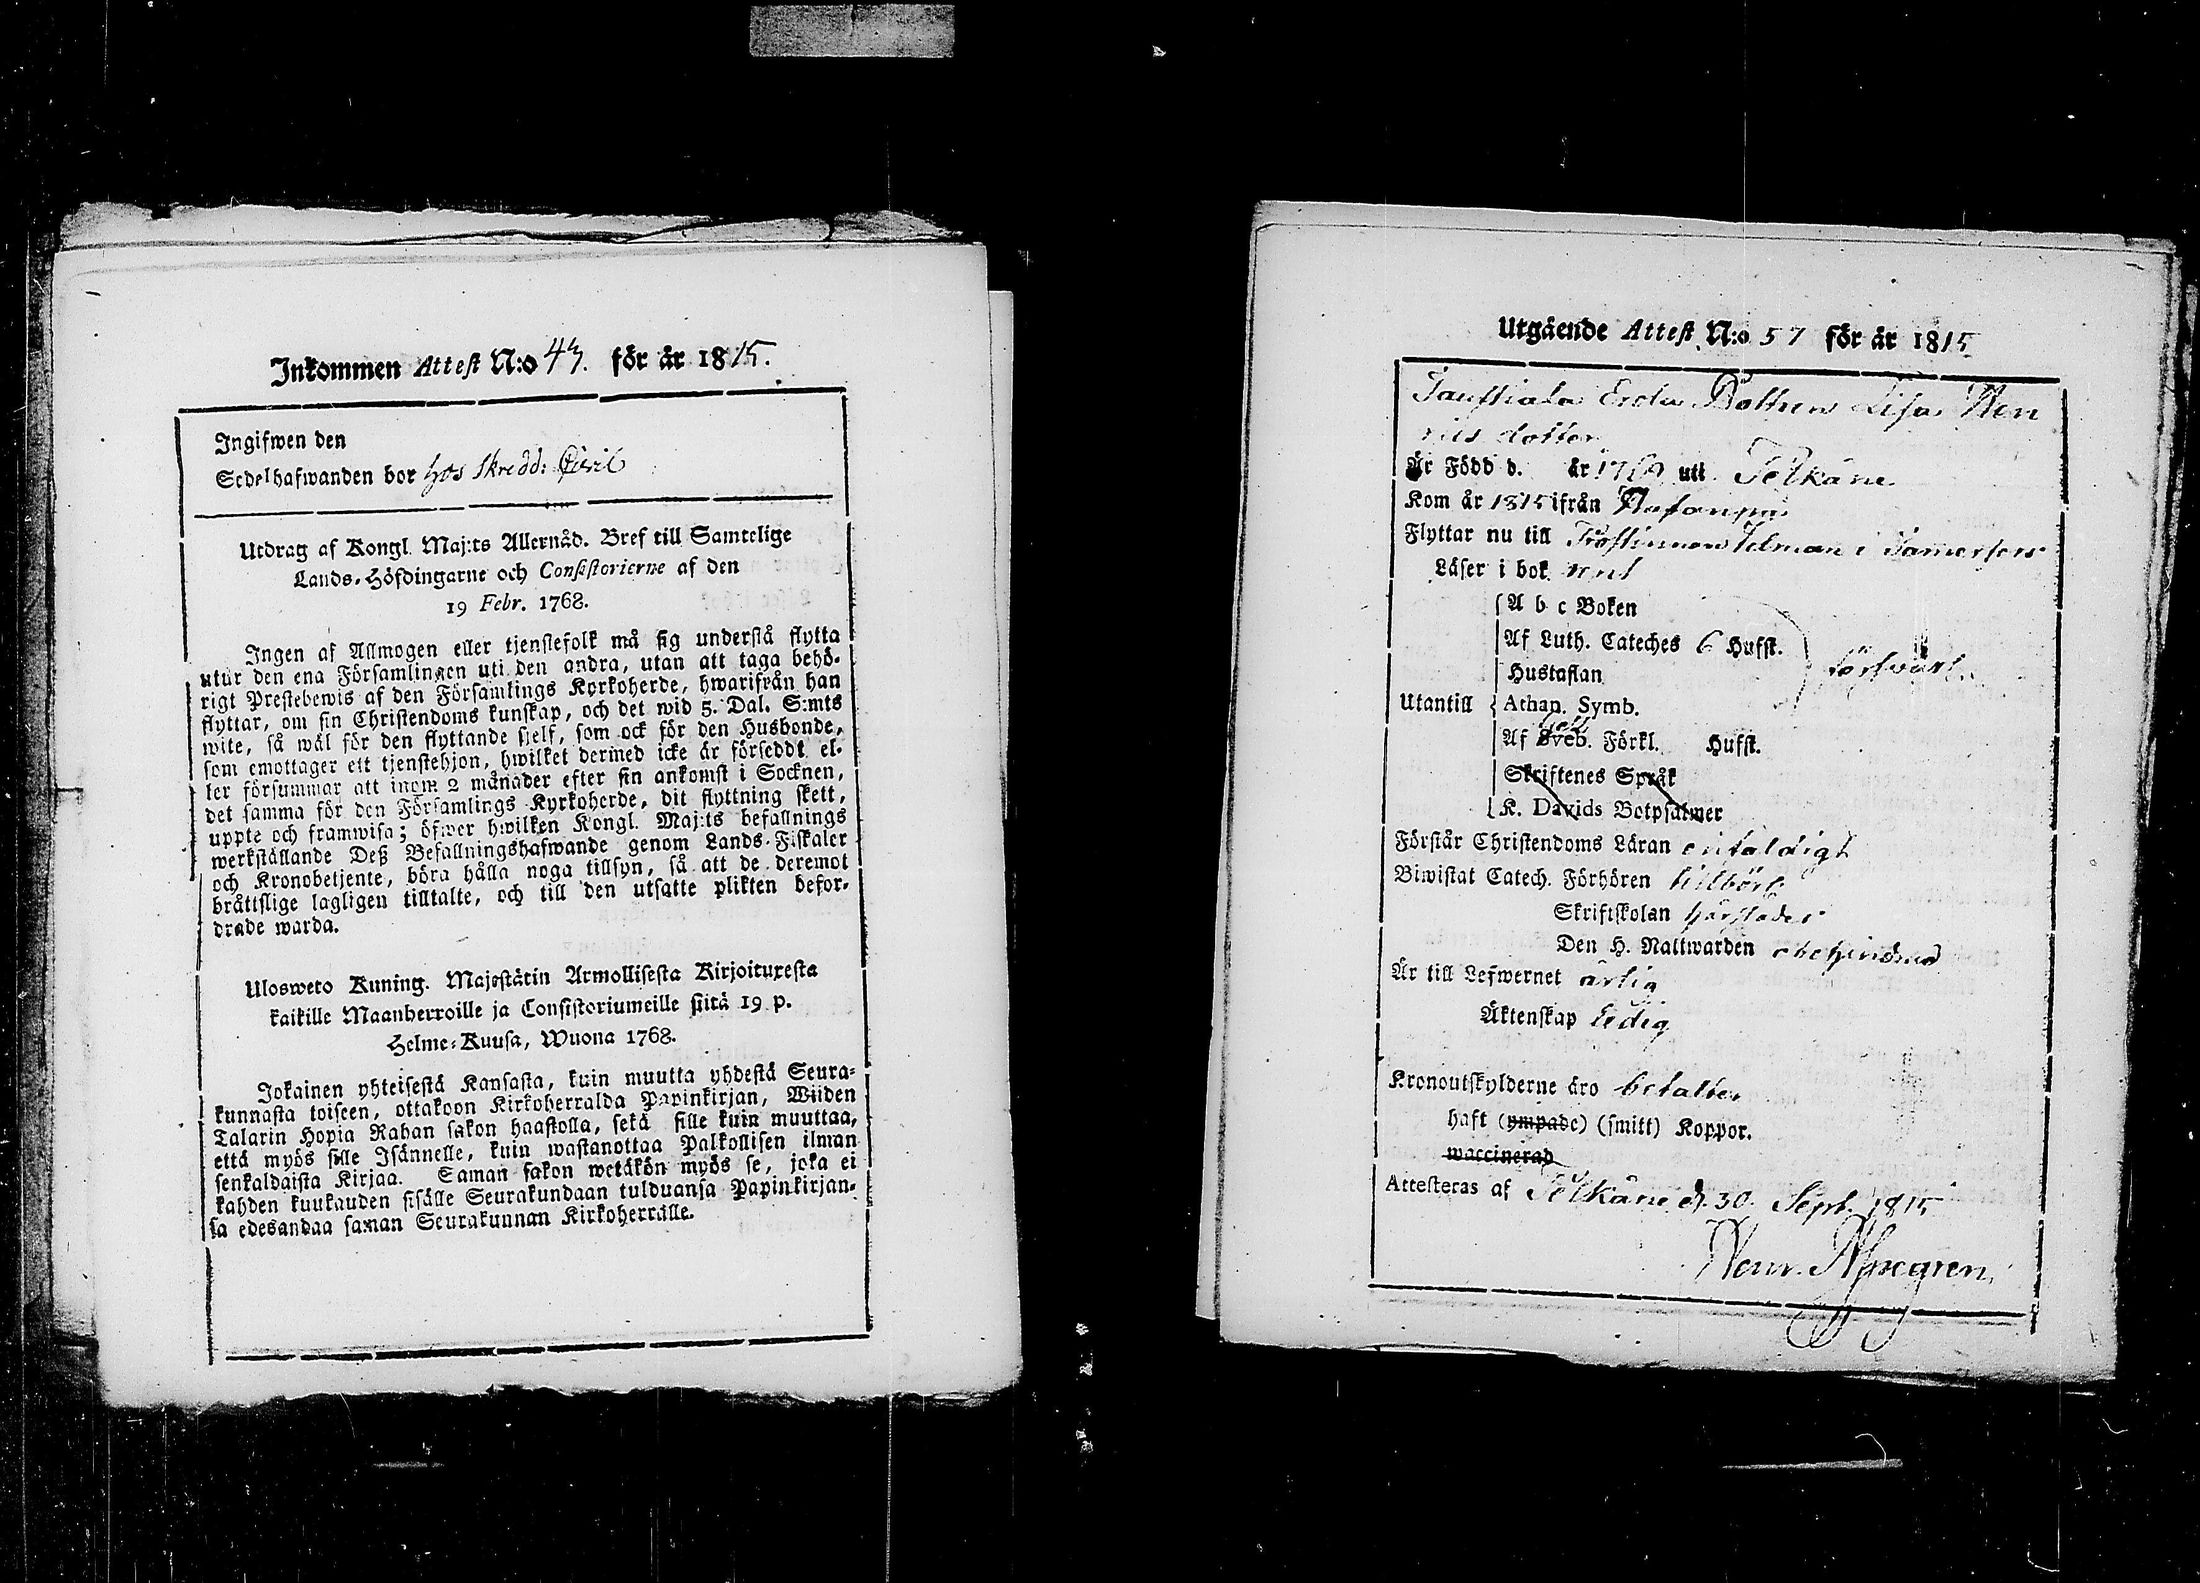 Inkommen Attest N:o 43. för år 1815.
Ingifwen den
Sedelhafwanden bor hos Skredd:
Utdrag af Kongl. Maj:ts Allernåd. Bref till Samtelige
Lands-Höfdingarne och Consistorierne af den
19 Febr. 1768.
Ingen af Allmogen eller tjenstefolk må sig understå flytta
utur den ena Församlingen uti den andra, utan att taga behö-
rigt Prestebewis af den Församlings Kyrkoherde, hwarifrån han
flyttar, om sin Christendoms kunskap, och det wid 5. Dal. S:mts
wite, så wäl för den flyttande sjelf, som ock för den Husbonde,
som emottager ett tjenstehjon, hwilket dermed icke är förseddt el-
ler försummar att inom 2 månader efter sin ankomst i Socknen,
det samma för den Församlings Kyrkoherde, dit flyttning skett,
uppte och framwisa; öfwer hwilken Kongl. Maj:ts befallnings
werkställande Deß Befallningshafwande genom Lands-Fiskaler
och Kronobetjente, böra hålla noga tillsyn, så att de deremot
bråttslige lagligen tilltalte, och till den utsatte plikten befor-
drade warda.
Ulosweto Kuning. Majestätin Armollisesta Kirjoituxesta
kaikille Maanherroille ja Consistoriumeille siitä 19 p.
Helme-Kuusa, Wuona 1768.
Jokainen yhteisestä Kansasta, kuin muutta yhdestä Seura-
kunnasta toiseen, ottakoon Kirkoherralda Papinkirjan, Wiiden
Talarin Hopia Rahan sakon haastolla, sekä sille kuin muuttaa,
että myös sille Isännelle, kuin wastanottaa Palkollisen ilman
senkaldaista Kirjaa. Saman sakon wetäkön myös se, joka ei
kahden kuukauden sisälle Seurakundaan tulduansa Papinkirjan-
sa edesandaa saman Seurakunnan Kirkoherralle.
Utgående Attest N:o 57 för år 1815
Lisa Hen
rics dotter
Är Född d. år uti Pelkäne
Kom år 1815 ifrån
Flyttar nu till i Tamerfors
Läser i bok rent
A b c Boken
Af Luth. Cateches 6 Hufst.
Hustaflan
försvarl.
Utantill Athan. Symb.
Af Sveb. Förkl. Hufst.
Skriftenes Språk
K. Davids Botpsalmer
Förstår Christendoms Läran enfaldigt
Biwistat Catech. Förhören tillbörl.
Skriftskolan härstädes
Den H. Nattwarden obehindrad
Är till Lefwernet ärlig
Äktenskap ledig
Kronoutskylderne äro betalte
haft (ympade) (smitt) Koppor.
waccinerad
Attesteras af Pelkäne d. 30. Sept. 1815
Henr.